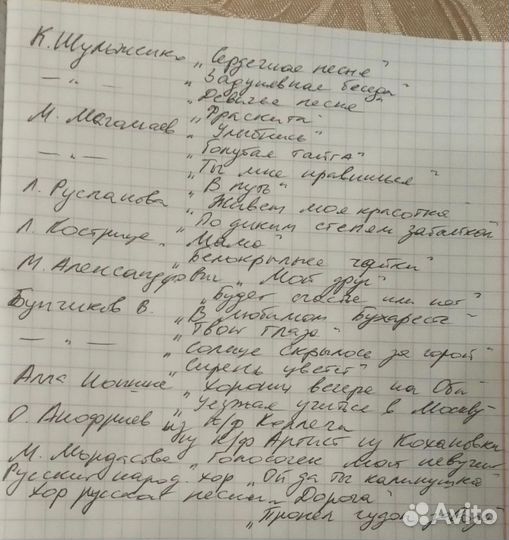 К. Шульженко „Сердечная песня"
— " — „Задушевная беседа"
„Девичья песня"
М. Магомаев „Фраскита"
„Улыбнись"
— " — „Голубая тайга"
„Ты мне нравишься"
Л. Русланова „В путь"
„Живет моя красотка"
Л. Кострица „По диким степям забайкал"
„Мама"
„Белокрылые чайки"
М. Александрович „Мой друг"
„Будет счастье или нет"
Бунчиков В. „В любимом Бухаресте"
„Твои глаза"
— " — „Солнце скрылось за горой"
„Сирень цветет"
Алла Иошпе „Хороши вечера на Оби"
„Уезжая учится в Москву"
О. Анофриев из К/ф Коллеги
из К/ф Артист из Кохановки
М. Мордасова „Голосочек мой певучий
Русский народ хор „Ой да ты калинушка"
Хор русской песни „Дорога"
„Пропел гудок
Avito